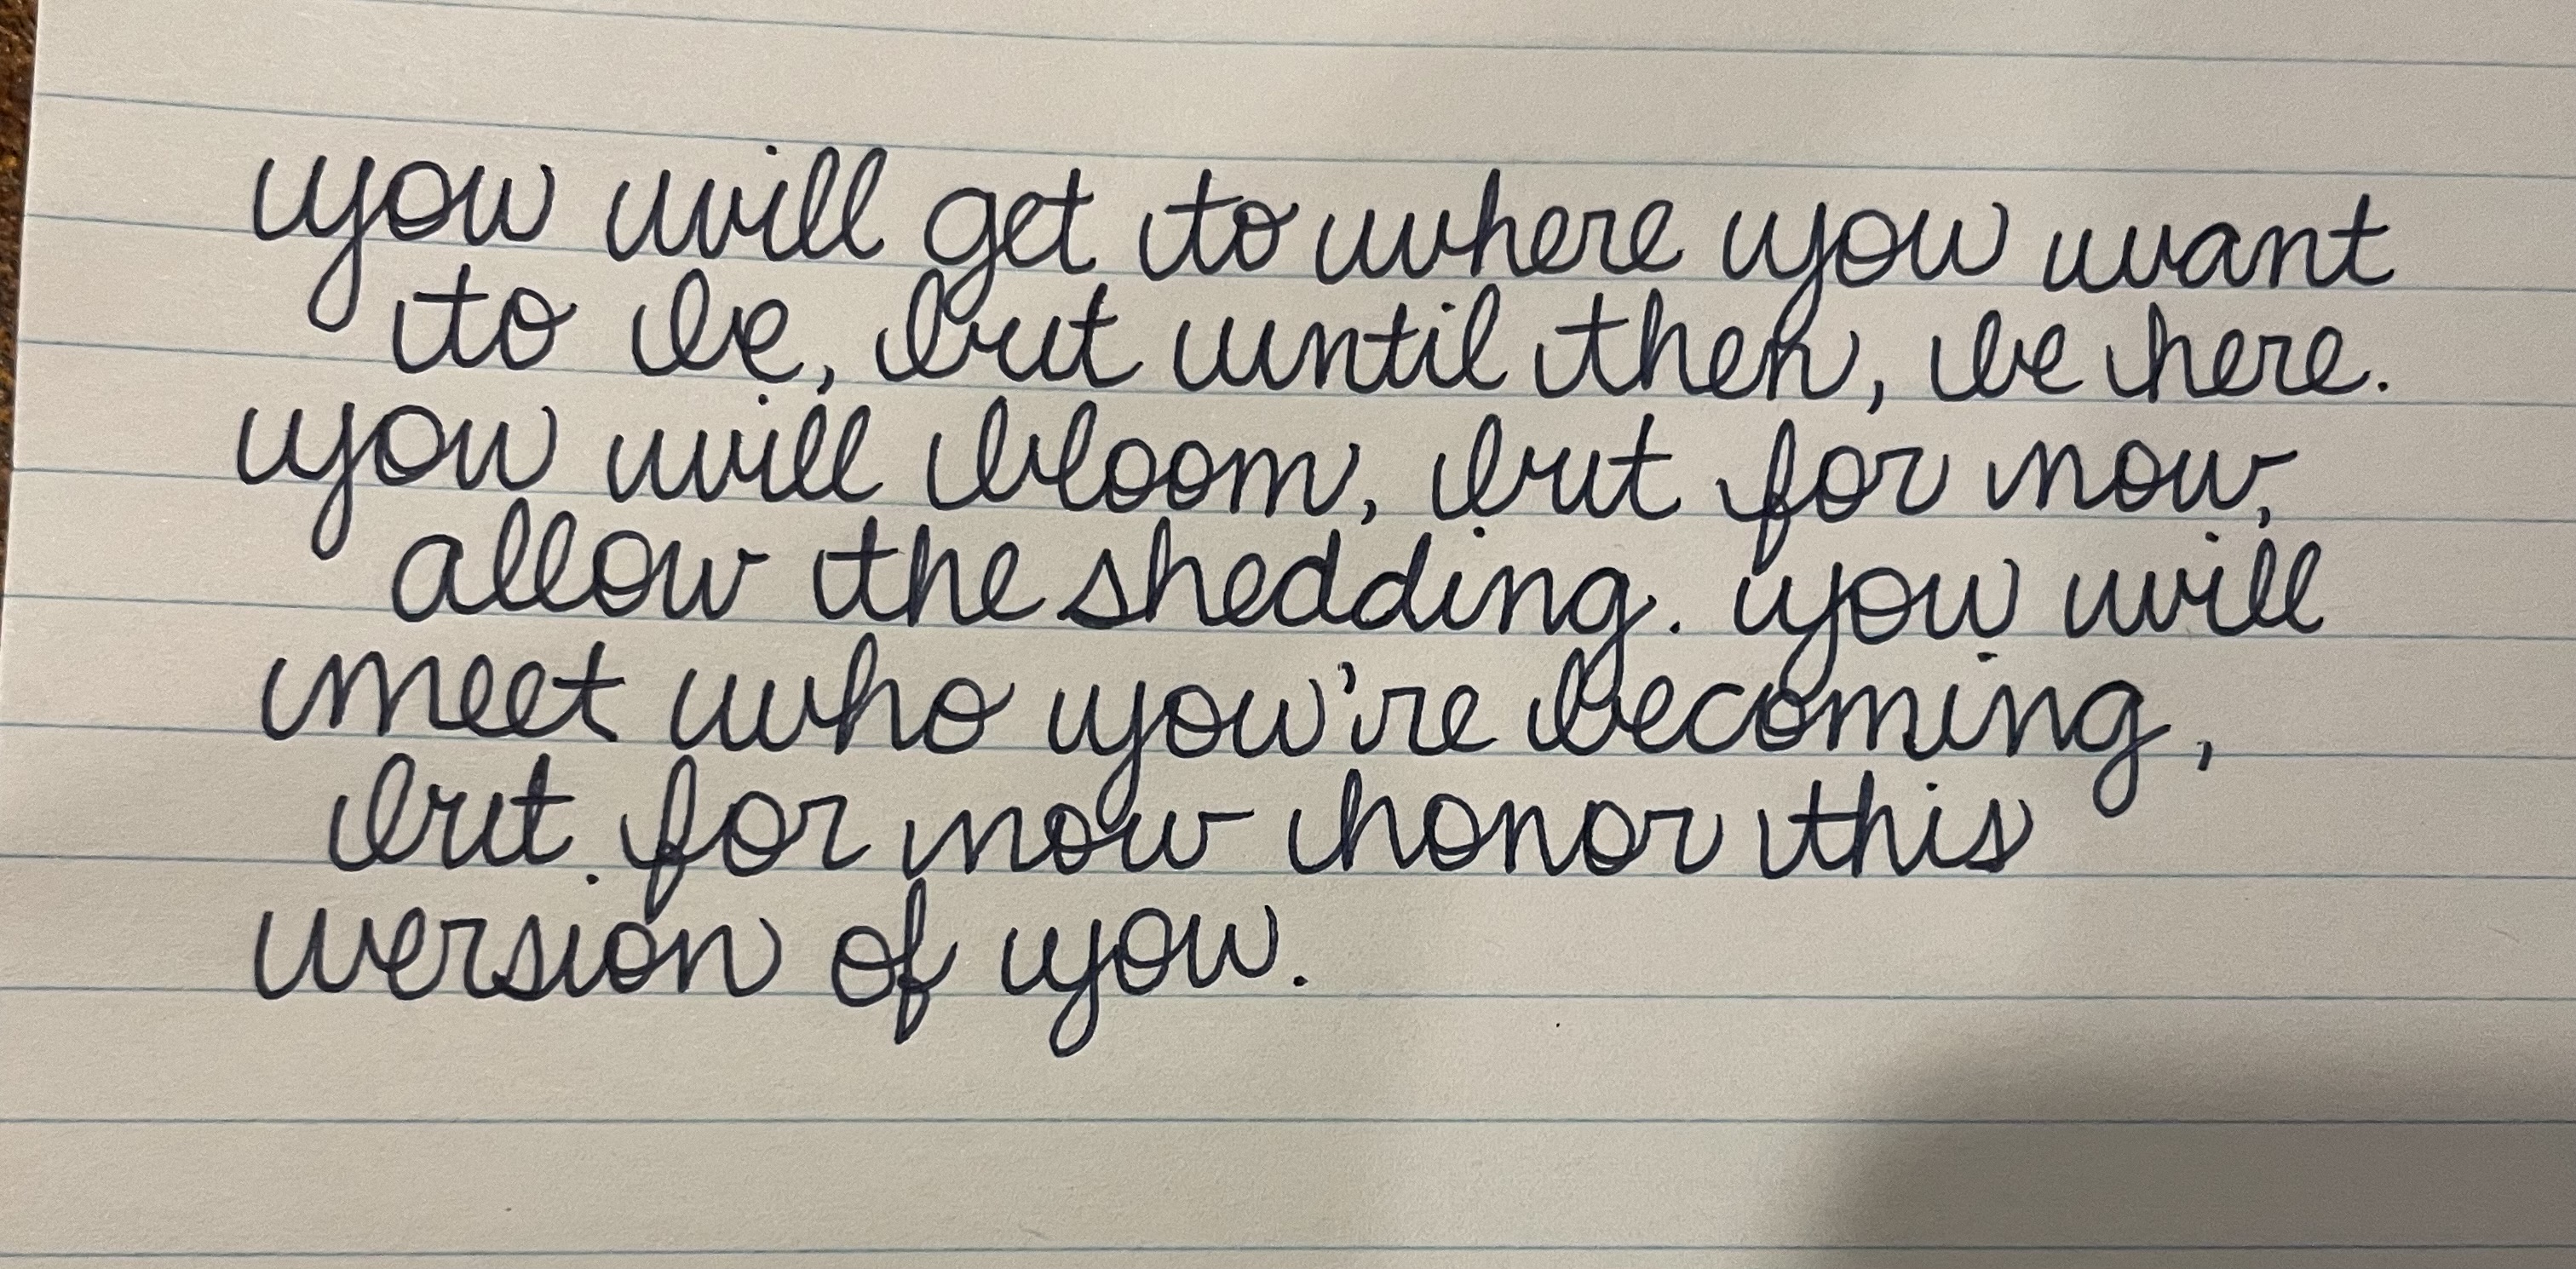 you will get to where you want
to be, but until then, be here.
you will bloom, but for now,
allow the shedding. you will
meet who you're becoming,
but for now honor this
version of you.